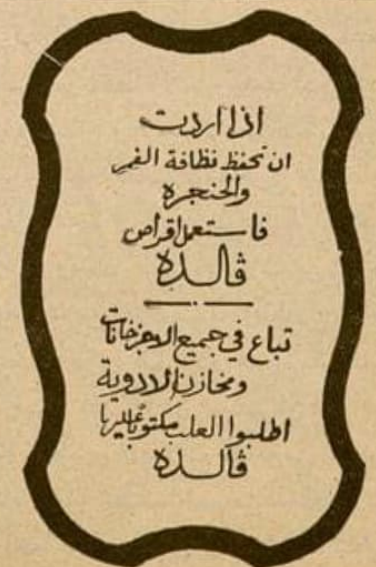 اذا اردت
ان تحفظ نظافة الفم
والحنجره
فاستعمل اقراص
ڤالده
تباع في جميع الاجزخانات
ومخازن الادوية
اطلبوا العلب مكتوبا عليها
ڤالده